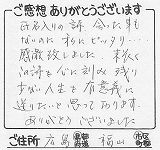 ご感想 ありがとうございます
氏名入りの詩 会った事も
ないのに 私にピッタリ…
感激致しました。 末永く
この詩を心に刻み 残り
少ない人生を 有意義に
送りたいと思っております。
ありがとうございました
ご住所 広島 都道府県 福山 市区町村